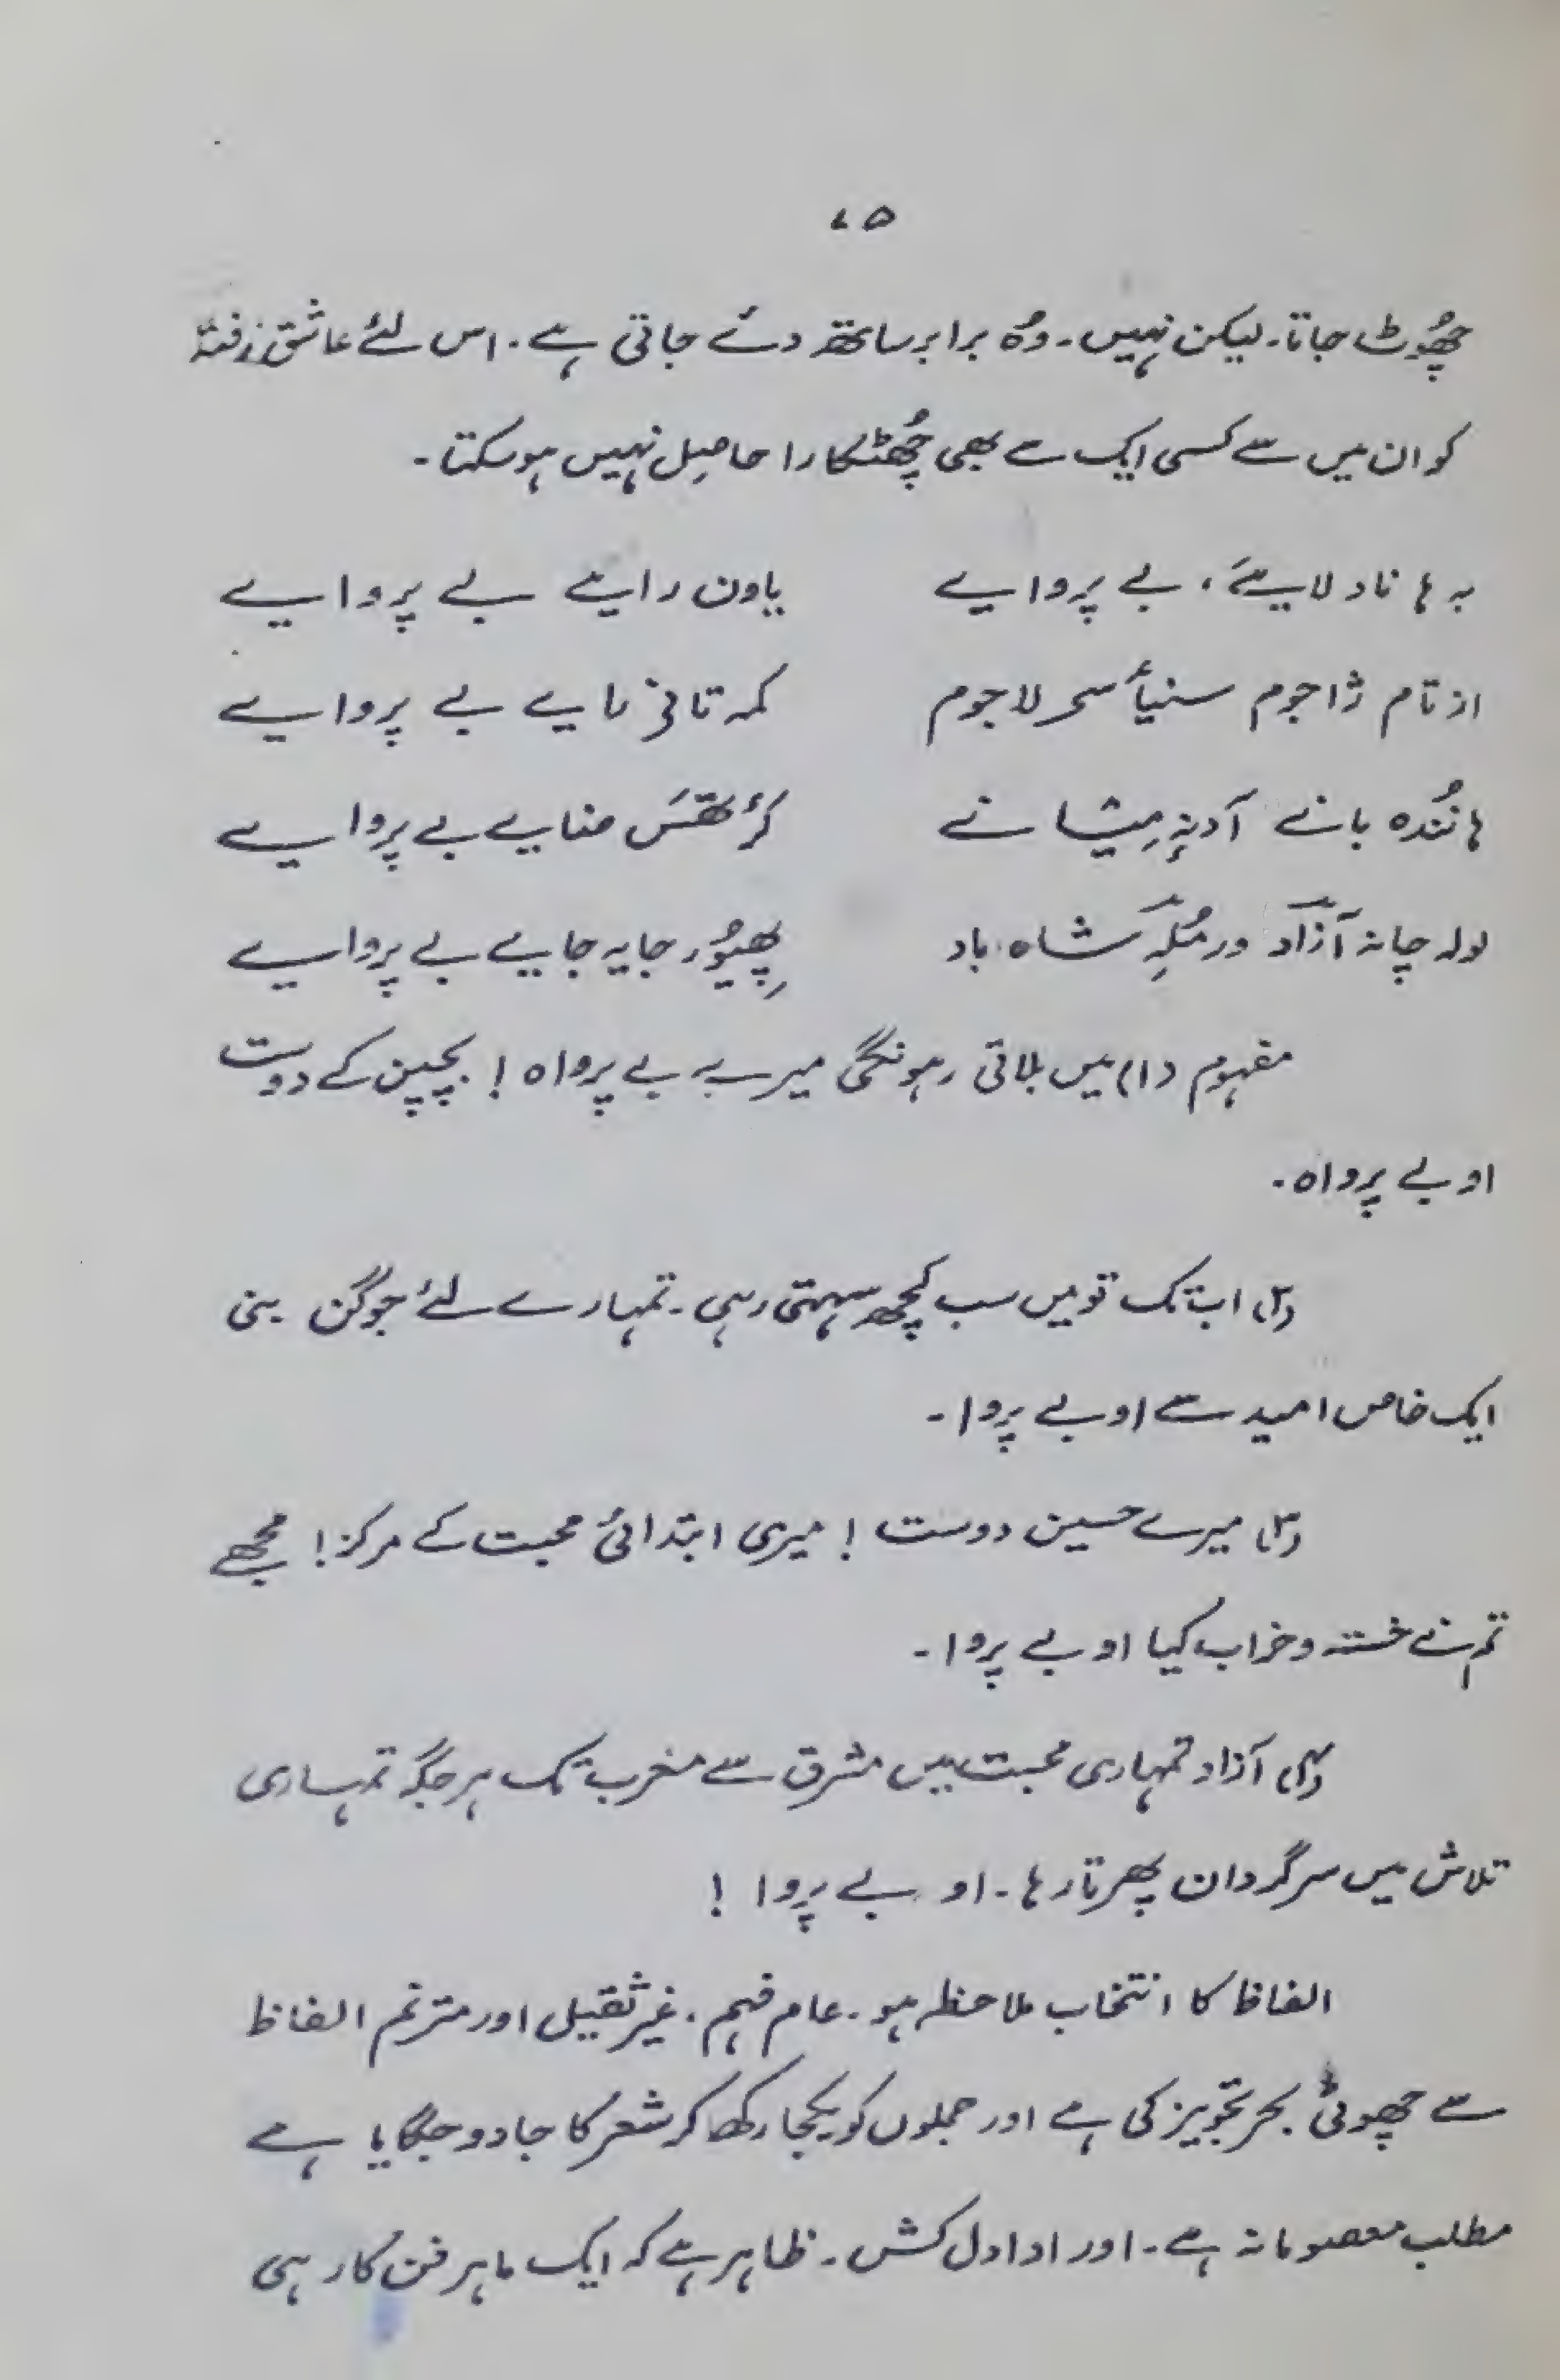 ۷۵
چھُوٹ جاتا۔ لیکن نہیں۔ وُہ برابر ساتھ دئے جاتی ہے۔ اس لئے عاشق زفتہ
کو ان میں سے کسی ایک سے بھی چُھٹکارا حاصِل نہیں ہوسکتا۔
بہ ہا ناد لایے، بے پروایے یاون رایے بے پروایے
از تام ژاجوم سنیأسحر لاجوم کمہ تافی مایے بے پروایے
ہا نُندہ بانے آدنہِ مِیشانے کرٔتھس ضایے بے پروایے
لولہ چانہ آزاد ورمُلہِ شاہ باد پھِیوُر جایہ جایے بے پروایے
مفہوم (۱) میں بلاتی رہونگی میرے بے پرواہ! بچپن کے دوست
او بے پرواہ۔
(۲) اب تک تو میں سب کچھ سہتی رہی۔ تمہارے لئے جوگن بنی
ایک خاص امید سے او بے پروا۔
(۳) میرے حسین دوست! میری ابتدائی محبت کے مرکز! مجھے
تم نے خستہ و خراب کیا او بے پروا۔
(۴) آزاد تمہاری محبت میں مشرق سے مغرب تک ہر جگہ تمہاری
تلاش میں سرگردان پھرتا رہا۔ او بے پروا!
الفاظ کا انتخاب ملاحظہ ہو۔ عام فہم، غیر ثقیل اور مترنم الفاظ
سے چھوٹی بحر تجویز کی ہے اور جملوں کو یکجا رکھا کر شعر کا جادو جگایا ہے
مطلب معصومانہ ہے۔ اور ادا دل کش۔ ظاہر ہے کہ ایک ماہر فن کار ہی